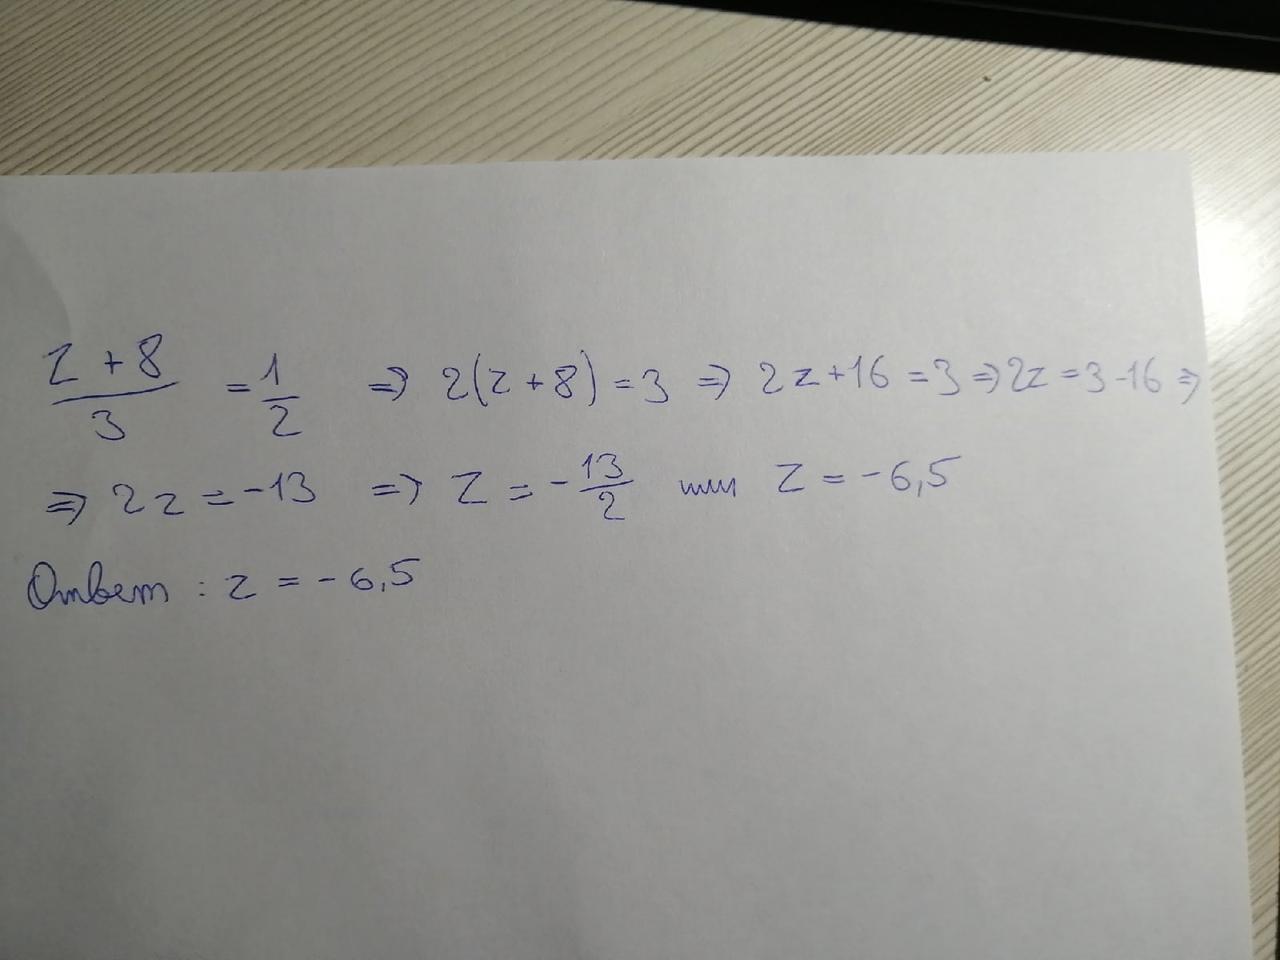 z + 8 / 3 = 1/2 => 2(z + 8) = 3 => 2z + 16 = 3 => 2z = 3 - 16 =>
=> 2z = -13 => z = - 13/2 или z = -6,5
Ответ : z = -6,5